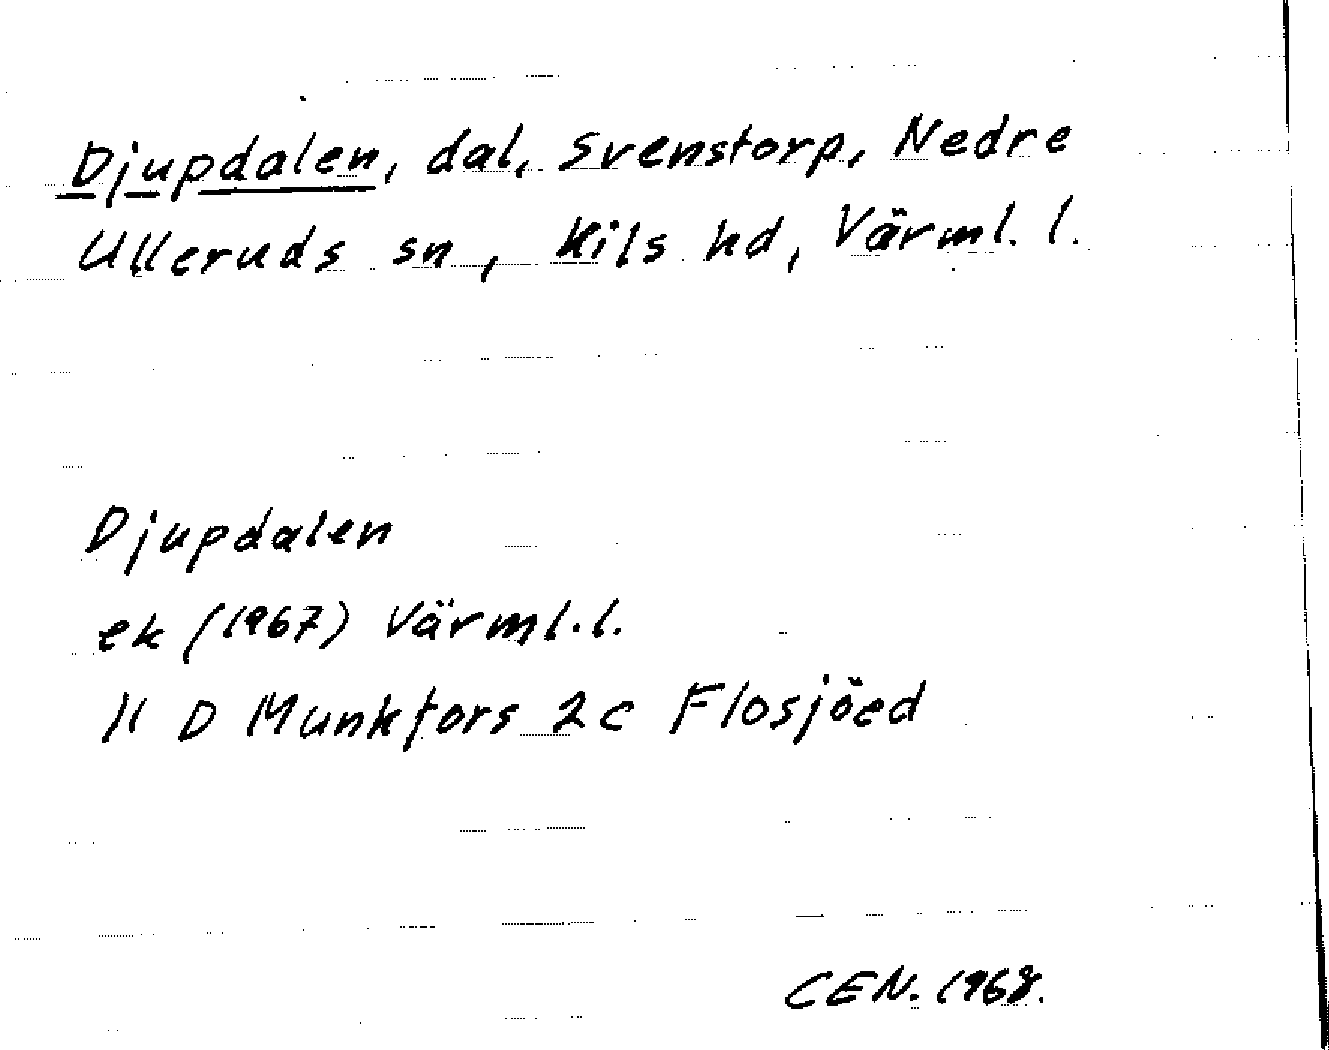 Djupdalen, dal, Svenstorp, Nedre
Ulleruds sn, Kils hd, Värml. l.
Djupdalen
ek (1967) Värml.l.
11 D Munkfors 2c Flosjöed
CEN. 1968.